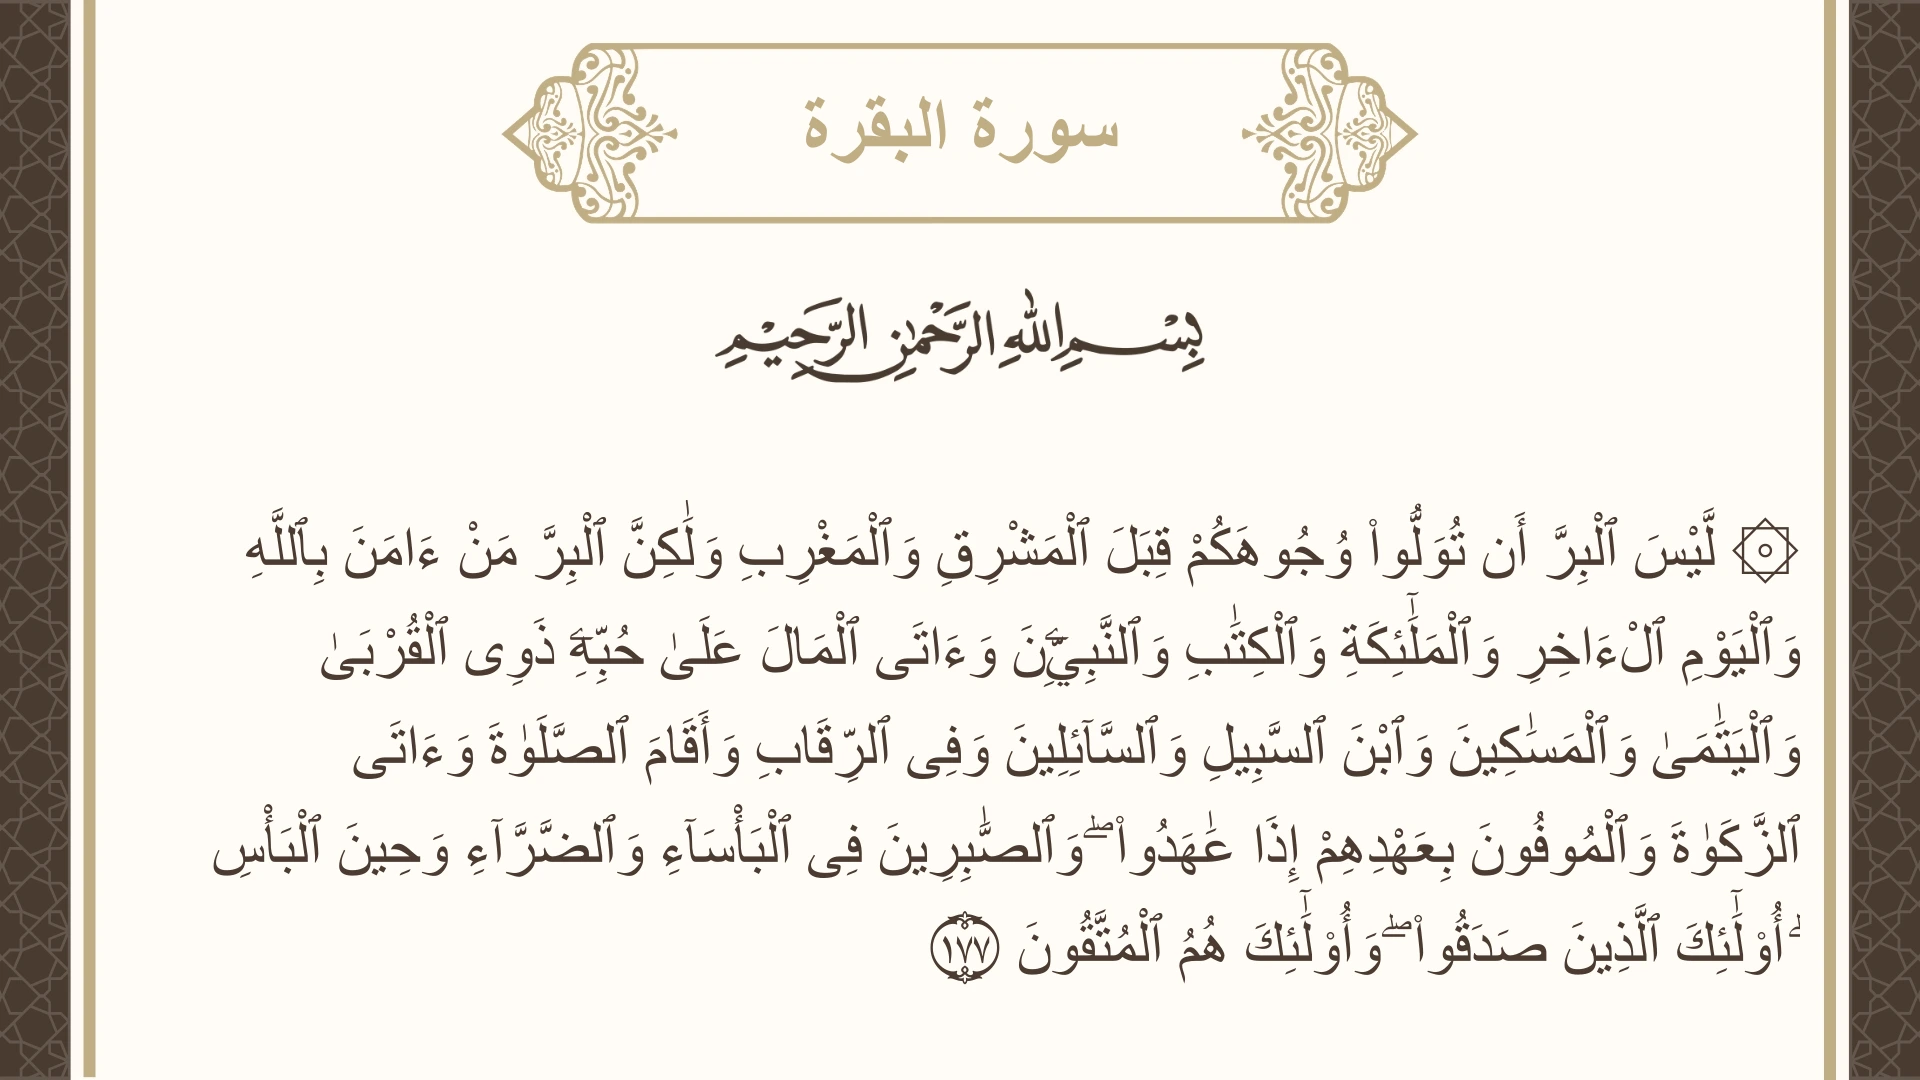 سورة البقرة
بِسْمِ اللهِ الرَّحْمٰنِ الرَّحِيْمِ
۞ لَّيْسَ ٱلْبِرَّ أَن تُوَلُّوا۟ وُجُوهَكُمْ قِبَلَ ٱلْمَشْرِقِ وَٱلْمَغْرِبِ وَلَٰكِنَّ ٱلْبِرَّ مَنْ ءَامَنَ بِٱللَّهِ
وَٱلْيَوْمِ ٱلْءَاخِرِ وَٱلْمَلَٰٓئِكَةِ وَٱلْكِتَٰبِ وَٱلنَّبِيِّۦنَ وَءَاتَى ٱلْمَالَ عَلَىٰ حُبِّهِۦ ذَوِى ٱلْقُرْبَىٰ
وَٱلْيَتَٰمَىٰ وَٱلْمَسَٰكِينَ وَٱبْنَ ٱلسَّبِيلِ وَٱلسَّآئِلِينَ وَفِى ٱلرِّقَابِ وَأَقَامَ ٱلصَّلَوٰةَ وَءَاتَى
ٱلزَّكَوٰةَ وَٱلْمُوفُونَ بِعَهْدِهِمْ إِذَا عَٰهَدُوا۟ ۖ وَٱلصَّٰبِرِينَ فِى ٱلْبَأْسَآءِ وَٱلضَّرَّآءِ وَحِينَ ٱلْبَأْسِ
ۗ أُو۟لَٰٓئِكَ ٱلَّذِينَ صَدَقُوا۟ ۖ وَأُو۟لَٰٓئِكَ هُمُ ٱلْمُتَّقُونَ ١٧٧